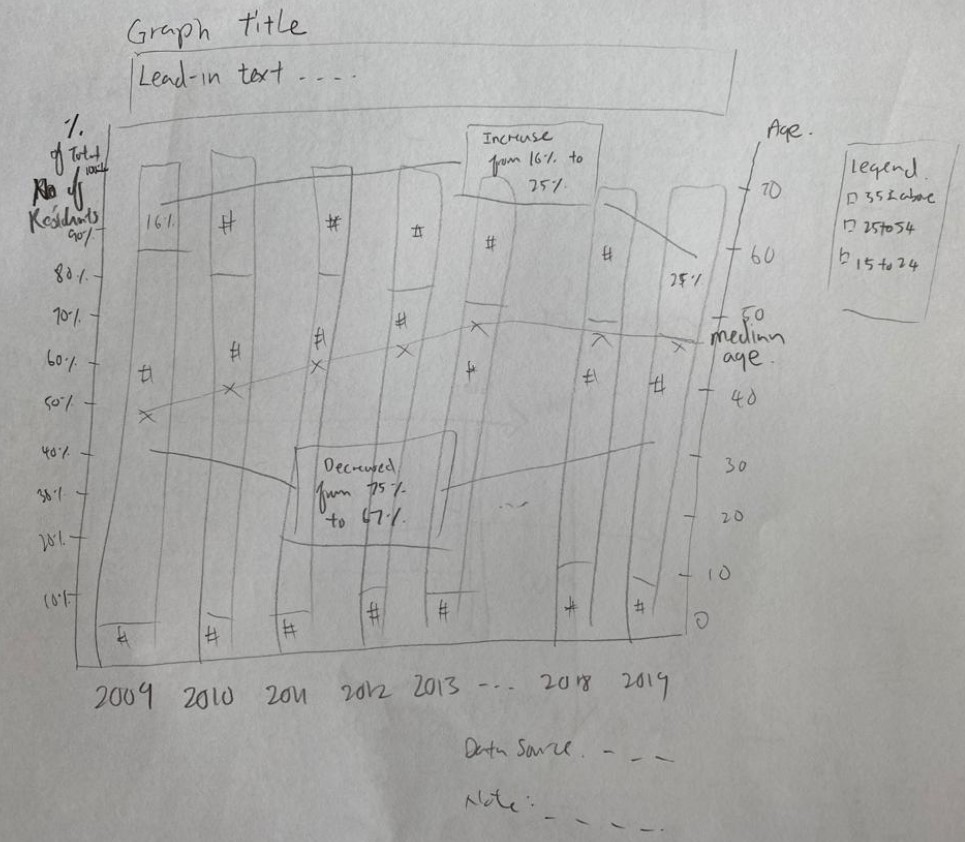 Graph Title
Lead-in text ....
%
of Total
No of
Residents
100%
90%
80%
70%
60%
50%
40%
30%
20%
10%
Increase
from 16% to
25%
Age.
70
60
50
40
30
20
10
0
median
age.
Legend
35 & above
25 to 54
15 to 24
16%
#
#
#
#
#
25%
#
#
#
#
#
#
#
Decreased
from 75%
to 67%
...
#
#
#
#
#
#
#
2009 2010 2011 2012 2013 ... 2018 2019
Data Source. - - -
Note: - - - -.